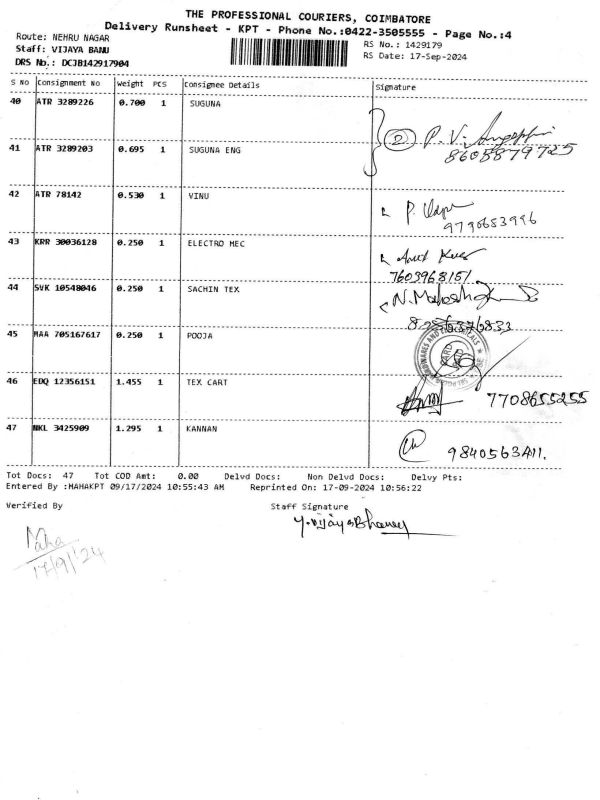 THE PROFESSIONAL COURIERS, COIMBATORE
Delivery Runsheet - KPT - Phone No.:0422-3505555 - Page No.:4
Route: NEHRU NAGAR
RS No.: 1429179
Staff: VIJAYA BANU
RS Date: 17-Sep-2024
DRS No.: DCJB142917904
S No Consignment No Weight PCS Consignee Details Signature
40 ATR 3289226 0.700 1 SUGUNA
2 P. V.
8605879725
41 ATR 3289203 0.695 1 SUGUNA ENG
42 ATR 78142 0.530 1 VINU
P.
9790653996
43 KRR 30036128 0.250 1 ELECTRO MEC
7603968151
44 SVK 10548046 0.250 1 SACHIN TEX
45 MAA 705167617 0.250 1 POOJA
46 EDQ 12356151 1.455 1 TEX CART
7708655255
47 NKL 3425909 1.295 1 KANNAN
9840563411.
Tot Docs: 47 Tot COD Amt: 0.00 Delvd Docs: Non Delvd Docs: Delvy Pts:
Entered By :MAHAKPT 09/17/2024 10:55:43 AM Reprinted On: 17-09-2024 10:56:22
Verified By Staff Signature
17/9/'24